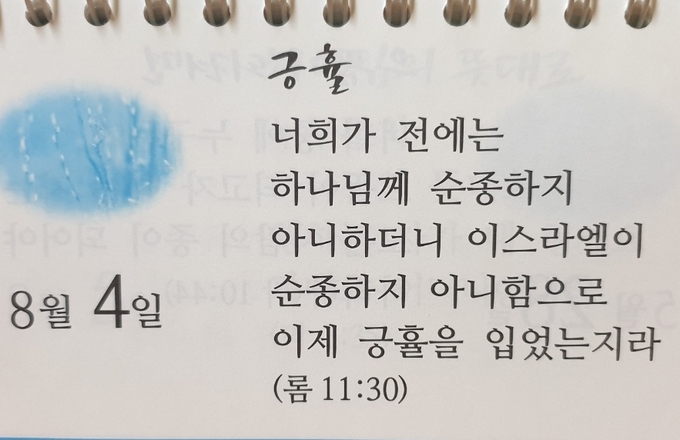 긍휼
너희가 전에는
하나님께 순종하지
아니하더니 이스라엘이
순종하지 아니함으로
이제 긍휼을 입었는지라
(롬 11:30)
8월 4일